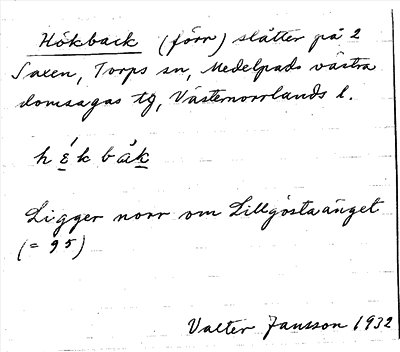 Hökback (förr) slåtter på 2
Saxen, Torps sn, Medelpads västra
domsagas tg, Västernorrlands l.
hɛ́kbåk
Ligger norr om Lillgöstaänget
(= 95)
Valter Jansson 1932